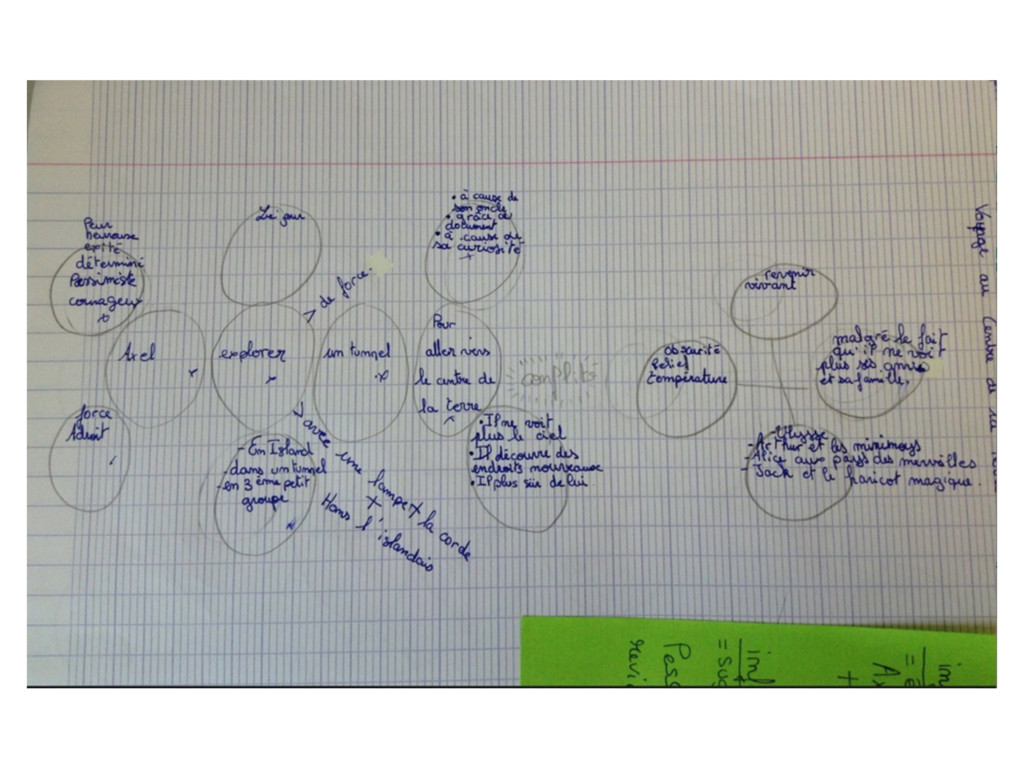 Peur
heureuse
exité
déterminé
Pessimiste
courageux
Le jour
• à cause de
son oncle
• grâce au
document
• à cause de
sa curiosité
> de force.
Axel
explorer
un tunnel
Pour
aller vers
le centre de
la terre
conflits
force
Adroit
- En Island
- dans un tunnel
- en 3 ème petit
groupe
> avec une lampe + la corde
+
Hans l'islandais
• Il ne voit
plus le ciel
• Il découvre des
endroits nouveaux
• Il plus sûr de lui
revenir
vivant
obscurité
température
malgré le fait
qu'il ne voit
plus ses amis
et sa famille.
- Ulysse
- Arthur et les minimoys
- Alice aux pays des merveilles
- Jack et le haricot magique.
Voyage au Centre de la
im
= suc
Pess
revi
im
= e
Ax
+